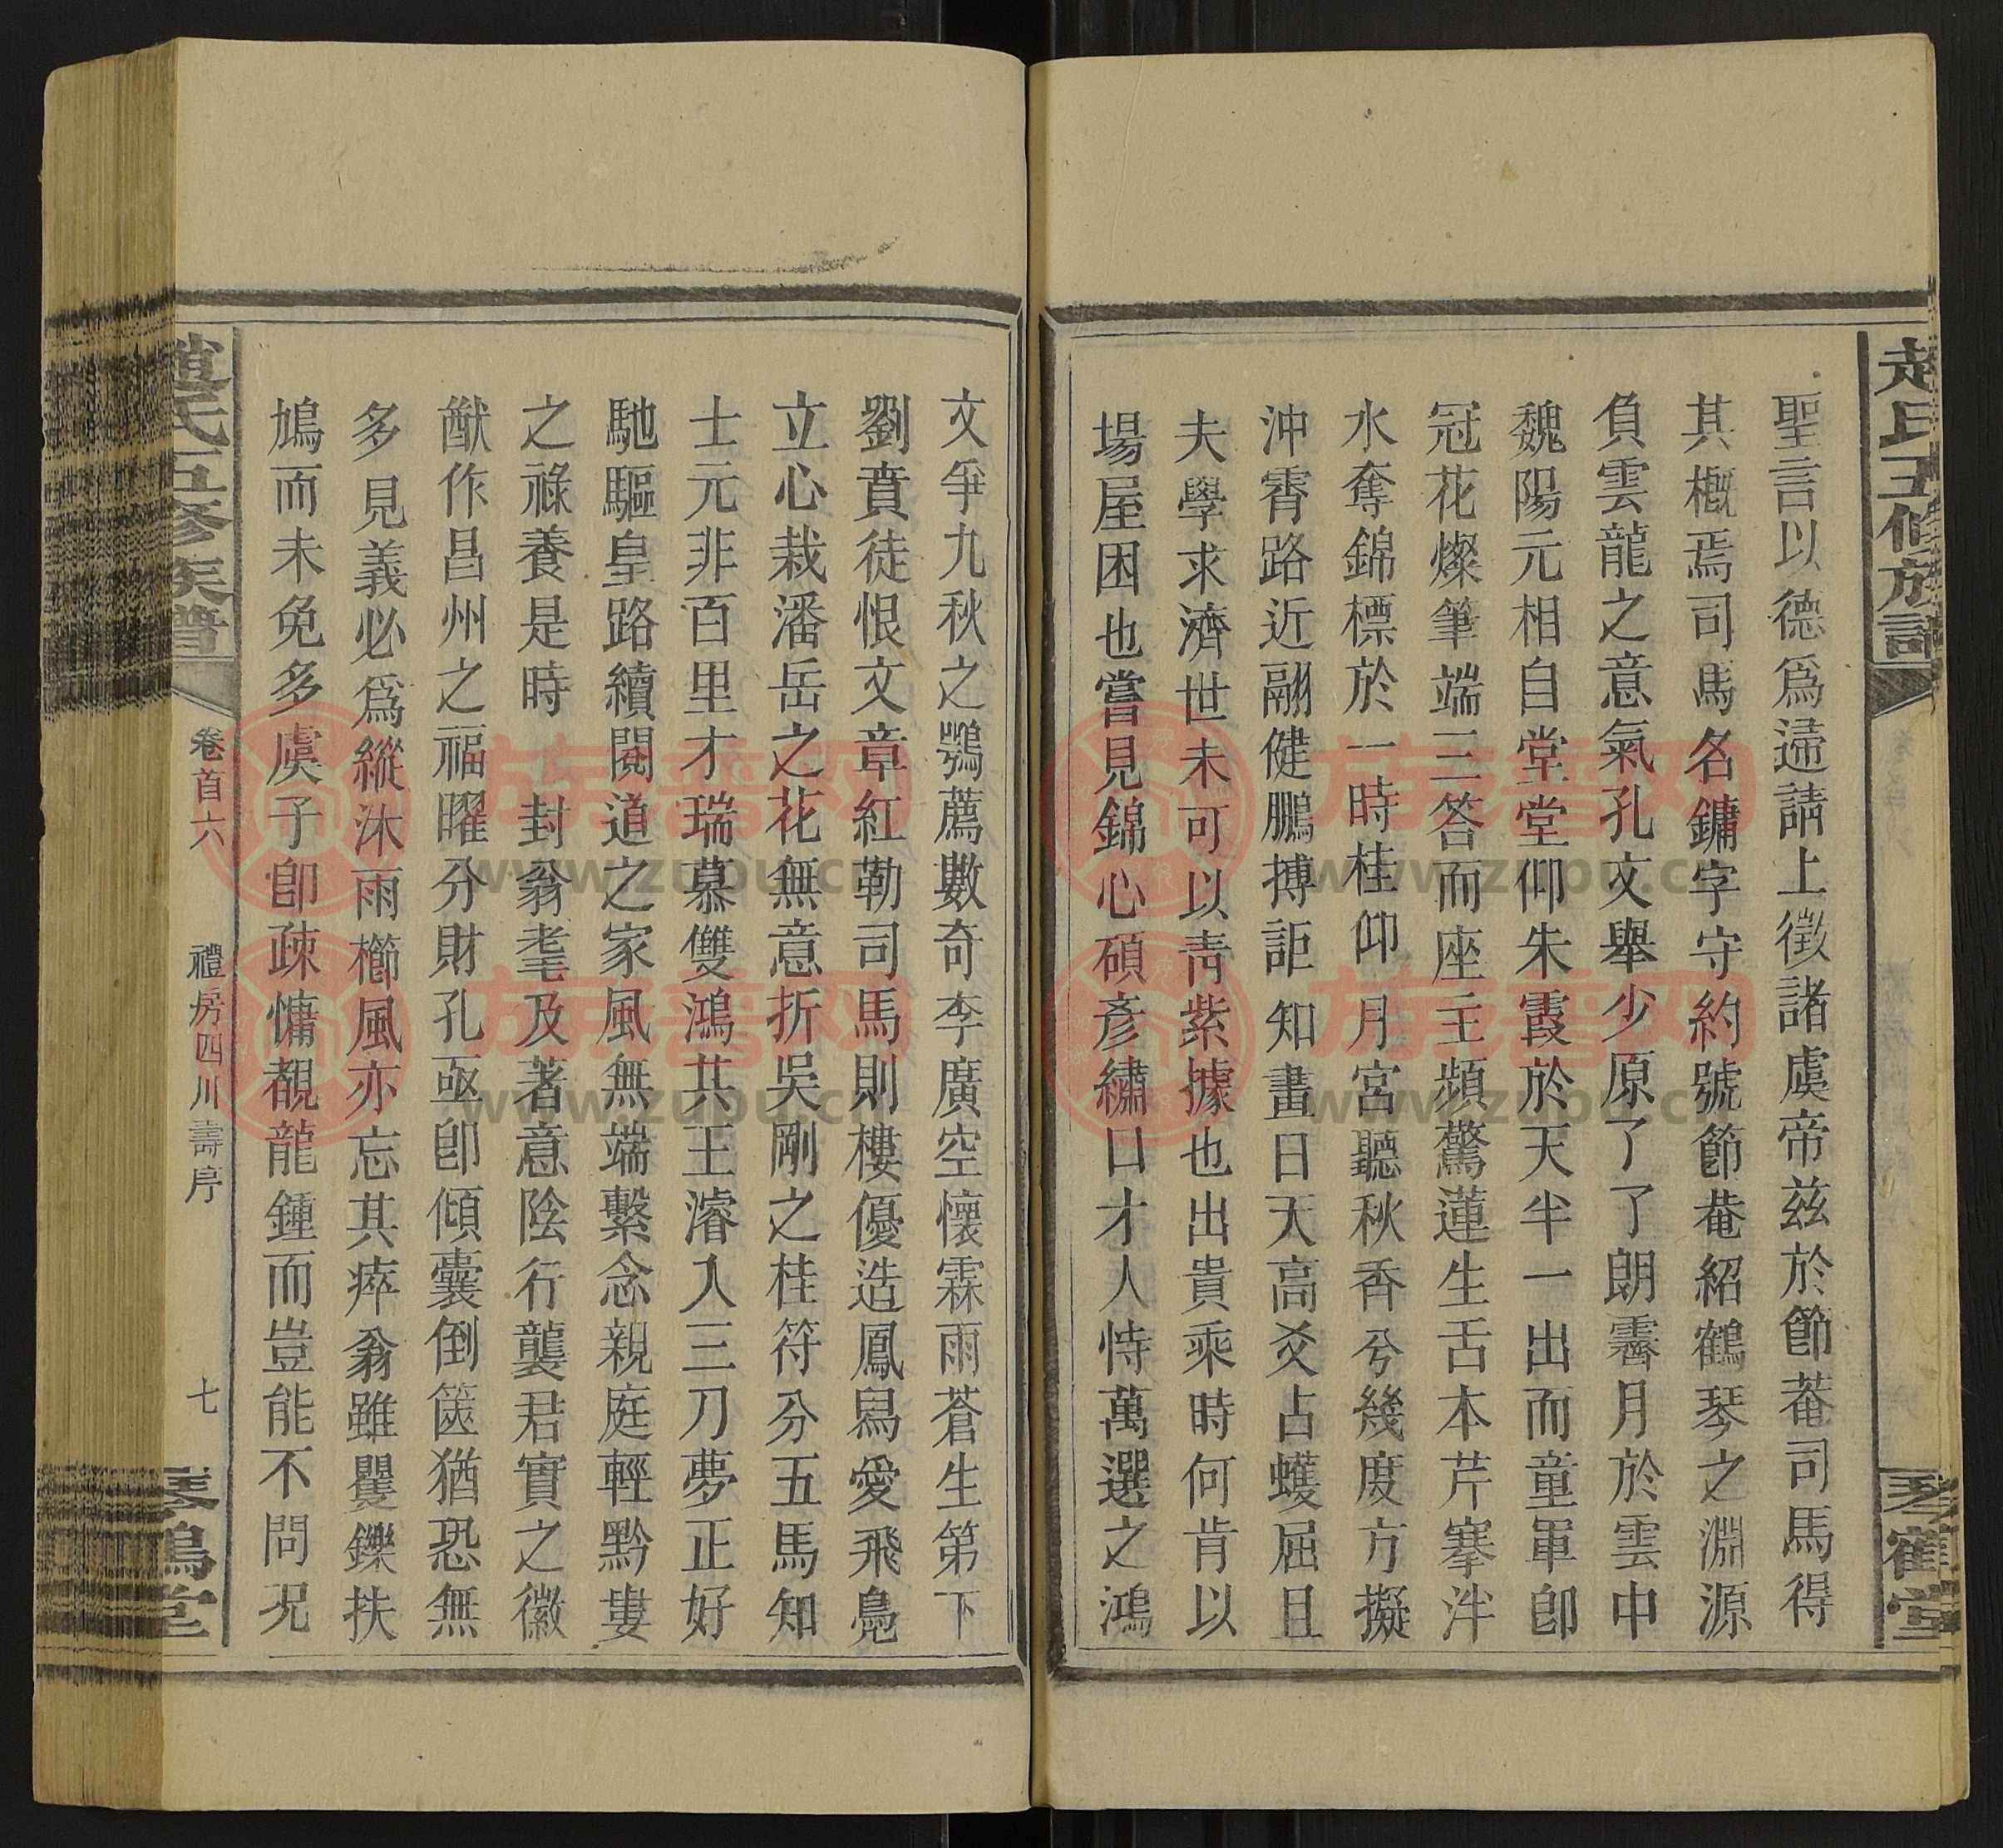 聖言以德爲歸請上徵諸虞帝兹於節菴司馬得
其概焉司馬名鏞字守約號節菴紹鶴琴之淵源
負雲龍之意氣孔文舉少原了了朗霽月於雲中
魏陽元相自堂堂仰朱霞於天半一出而童軍卽
冠花燦筆端三答而座主頻驚蓮生舌本芹搴泮
水奪錦標於一時桂仰月宮聽秋香兮幾度方擬
沖霄路近翮健鵬摶詎知畫日天高爻占蠖屈且
夫學求濟世未可以靑紫據也出貴乘時何肯以
場屋困也嘗見錦心碩彥繡口才人恃萬選之鴻
文爭九秋之鶚薦數奇李廣空懷霖雨蒼生第下
劉蕡徒恨文章紅勒司馬則樓優造鳳舃愛飛鳧
立心栽潘岳之花無意折吳剛之桂符分五馬知
士元非百里才瑞慕雙鴻共王濬入三刀夢正好
馳驅皇路續閱道之家風無端繫念親庭輕黔婁
之祿養是時封翁耄及著意陰行襲君實之徽
猷作昌州之福曜分財孔亟卽傾囊倒篋猶恐無
多見義必爲縱沐雨櫛風亦忘其瘁翁雖矍鑠扶
鳩而未免多虞子卽疎慵覩龍鍾而豈能不問況
趙氏五修族譜
卷首六
禮房四川壽序
七
琴鶴堂
族譜网
www.zupu.cn